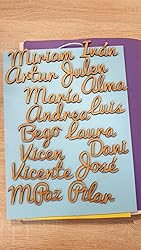 Miriam Iván
Artur Julen
María Alma
Andrea Luis
Bego Laura
Vicen Dani
Vicente José
MPaz Pilar